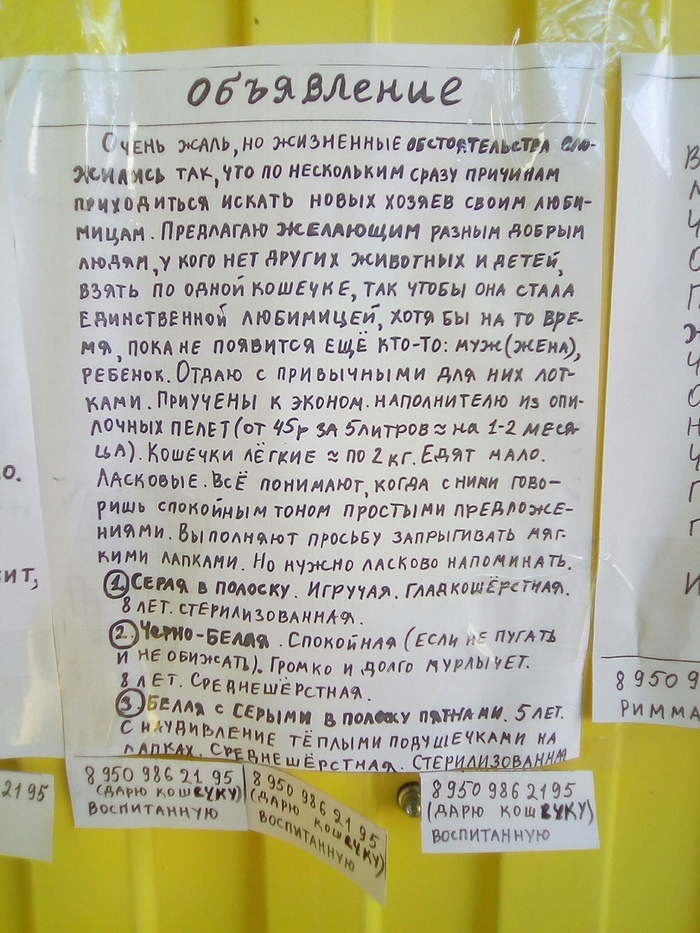 Объявление
Очень жаль, но жизненные обстоятельства сло-
жились так, что по нескольким сразу причинам
приходиться искать новых хозяев своим люби-
мицам. Предлагаю желающим разным добрым
людям, у кого нет других животных и детей,
взять по одной кошечке, так чтобы она стала
единственной любимицей, хотя бы на то вре-
мя, пока не появится ещё кто-то: муж(жена),
ребенок. Отдаю с привычными для них лот-
ками. Приучены к эконом. наполнителю из опи-
лочных пелет (от 45р за 5литров ≈ на 1-2 меся-
ца). Кошечки лёгкие ≈ по 2 кг. Едят мало.
Ласковые. Всё понимают, когда с ними гово-
ришь спокойным тоном простыми предложе-
ниями. Выполняют просьбу запрыгивать мяг-
кими лапками. Но нужно ласково напоминать.
1. Серая в полоску. Игручая. Гладкошёрстная.
8 лет. Стерилизованная.
2. Черно-белая. Спокойная (если не пугать
и не обижать). Громко и долго мурлычет.
8 лет. Среднешёрстная.
3. Белая с серыми в полоску пятнами. 5 лет.
С наудивление тёплыми подушечками на
лапках. Среднешёрстная. Стерилизованная
8 950 986 21 95
(дарю кошечку)
воспитанную
8 950 986 21 95
(дарю кошечку)
воспитанную
8 950 986 21 95
(дарю кошечку)
воспитанную
21 95
8 950 9
Римма